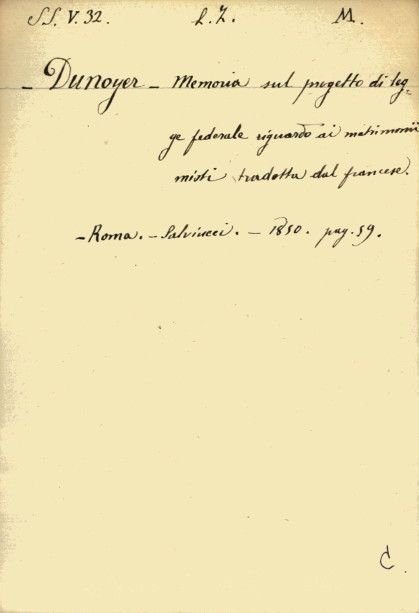 SS. V. 32. L. Z. M.
- Dunoyer - Memoria sul progetto di leg=
ge federale riguardo ai matrimonii
misti tradotta dal francese.
- Roma. - Salviucci. - 1850. pag. 59.
C